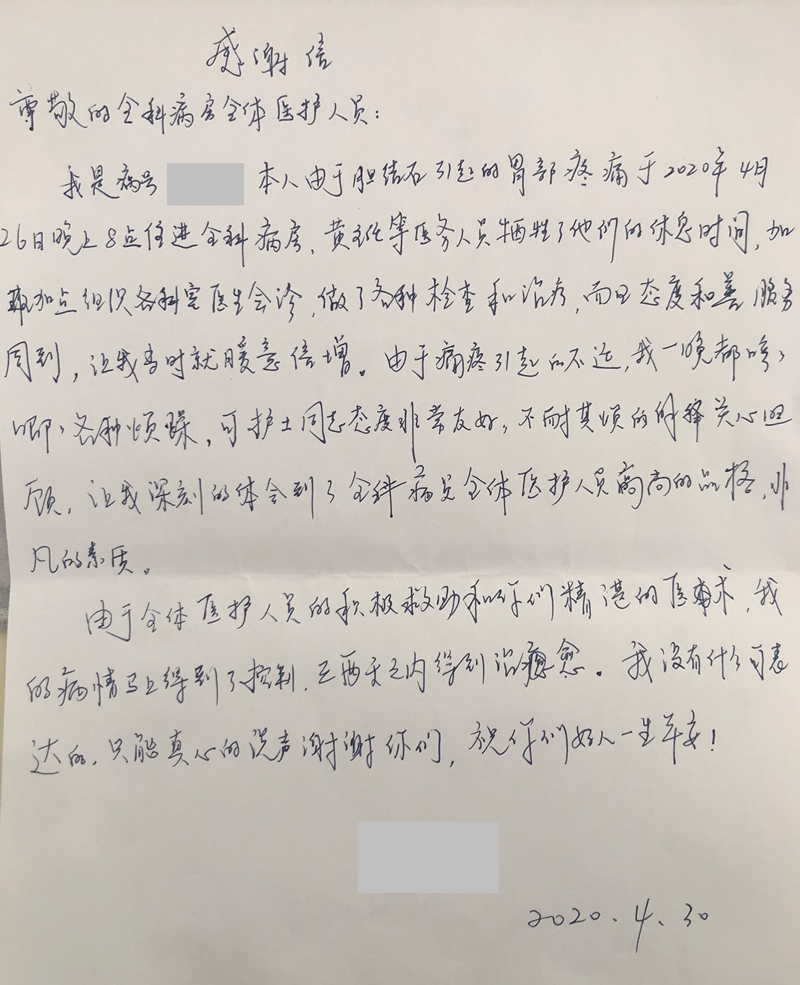 感谢信
尊敬的全科病房全体医护人员：
我是病号 本人由于胆结石引起的胃部疼痛于2020年4月
26日晚上8点住进全科病房，黄主任等医务人员牺牲了他们的休息时间，加
班加点组织各科室医生会诊，做了各种检查和治疗，而且态度和善服务
周到，让我当时就暖意倍增。由于病疼引起的不适，我一晚都哼哼
唧唧各种烦躁，可护士同志态度非常友好，不耐其烦的解释关心照
顾，让我深刻的体会到了全科病员全体医护人员高尚的品格，非
凡的素质。
由于全体医护人员的积极救助和你们精湛的医术，我
的病情马上得到了控制，三两天之内得到治愈。我没有什么可表
达的，只能真心的说声谢谢你们，祝你们好人一生平安！
2020.4.30